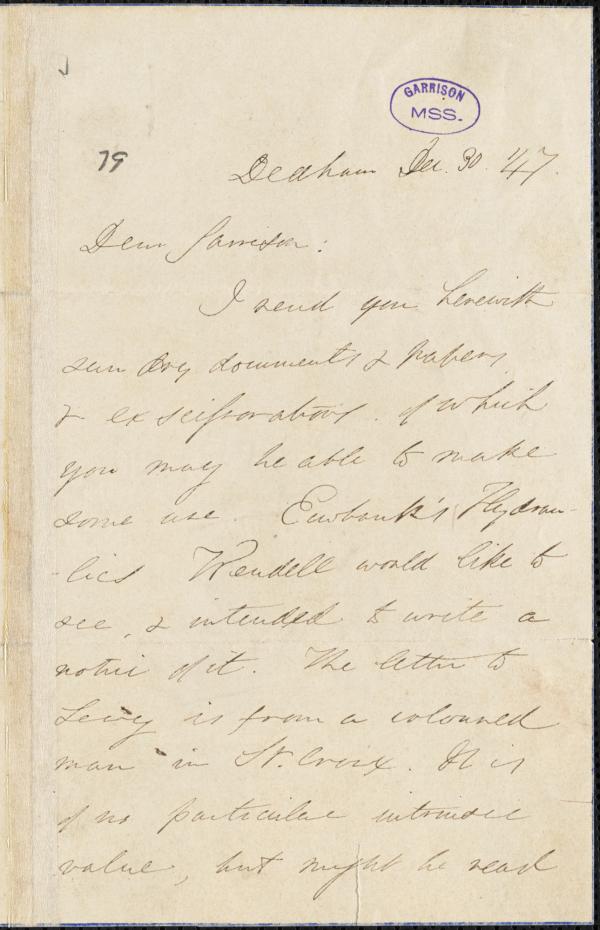 GARRISON
MSS.
79
Dedham Dec. 30. '47.
Dear Garrison:
I send you herewith
sundry documents & papers
& exscissorations, of which
you may be able to make
some use. Ewbank's Hydrau-
-lics Wendell would like to
see, & intended to write a
notice of it. The letter to
is from a coloured
man in St. Croix. It is
of no particular intrinsic
value, but might be read